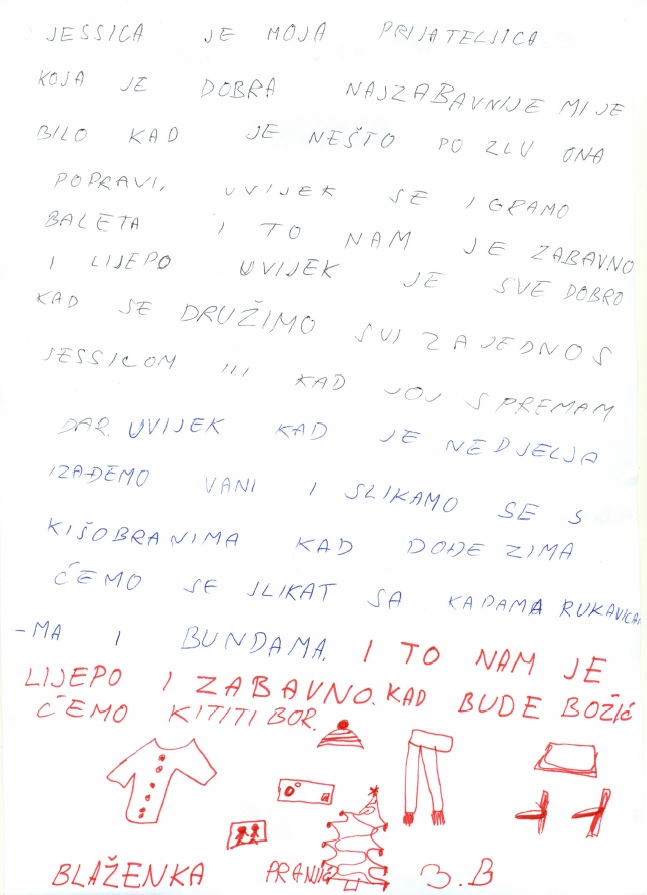 JESSICA JE MOJA PRIJATELJICA
KOJA JE DOBRA NAJZABAVNIJE MI JE
BILO KAD JE NEŠTO PO ZLU ONA
POPRAVI, UVIJEK SE IGRAMO
BALETA I TO NAM JE ZABAVNO
I LIJEPO UVIJEK JE SVE DOBRO
KAD SE DRUŽIMO SVI ZAJEDNO S
JESSICOM !!! KAD JOJ SPREMAM
DAR. UVIJEK KAD JE NEDJELJA
IZAĐEMO VANI I SLIKAMO SE S
KIŠOBRANIMA KAD DOĐE ZIMA
ĆEMO SE SLIKAT SA KAPAMA RUKAVICA
-MA I BUNDAMA. I TO NAM JE
LIJEPO I ZABAVNO. KAD BUDE BOŽIĆ
ĆEMO KITITI BOR.
BLAŽENKA 3.B